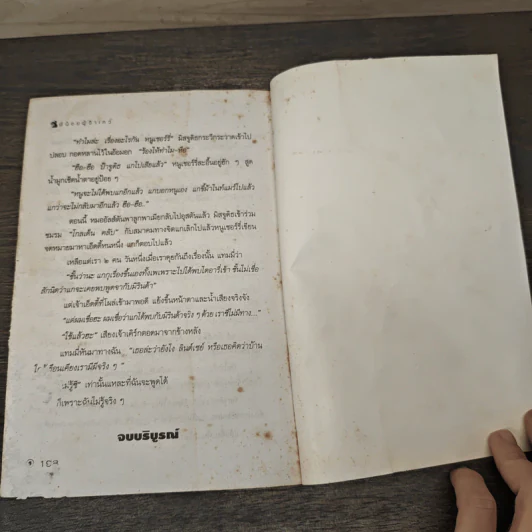 "ทำไมล่ะ เรื่องอะไรกัน หนูเชอร์รี่" มิสจูดิธกระวีกระวาดเข้าไป
ปลอบ กอดหลานไว้ในอ้อมอก "ร้องไห้ทำไม-ฮือ"
"ฮือ-ฮือ ป้าจูดิธ แกไปเสียแล้ว" หนูเชอร์รี่สะอื้นอยู่ฮัก ๆ สูด
น้ำมูกเช็ดน้ำตาอยู่ป้อย ๆ
"หนูจะไม่ได้พบแกอีกแล้ว แกบอกหนูเอง แกขี่ม้าไนท์แมร์ไปแล้ว
แกว่าจะไม่กลับมาอีกแล้ว ฮือ-ฮือ."
ตอนนี้ หมออัลส์ตันพาลูกพาเมียกลับไปอุสตันแล้ว มิสจูดิธเข้าร่วม
ชมรม "โกลเด้น คลับ" กับสมาคมทางจิตแกเลิกไปแล้วหนูเชอร์รี่เขียน
จดหมายมาหาเอ็ดดี้หนหนึ่ง แกก็ตอบไปแล้ว
เหลือแต่เรา ๒ คน วันหนึ่งเมื่อเราคุยกันถึงเรื่องนั้น แทมมี่ว่า
"ชั้นว่านะ แกกุเรื่องขึ้นเองทั้งเพเพราะไปได้พบไดอารี่เข้า ชั้นไม่เชื่อ
สักนิดว่าแกจะเคยพบพูดจากับมิรินด้า"
แต่เจ้าเอ็ดดี้ที่โผล่เข้ามาพอดี แย้งขึ้นหน้าตาและน้ำเสียงจริงจัง
"แต่ผมเชื่อฮะ ผมเชื่อว่าแกได้พบกับมิรินด้าจริง ๆ ด้วย เราซีไม่มีทาง..."
"ใช้แล้วฮะ" เสียงเจ้าเคิร์กตอดมาจากข้างหลัง
แทมมี่หันมาทางฉัน "เธอล่ะว่ายังไง ลินด์เซย์ หรือเธอคิดว่าบ้าน
เรือนเคียงเรามีผีจริง ๆ"
ไม่รู้ซี" เท่านั้นแหละที่ฉันจะพูดได้
ก็เพราะฉันไม่รู้จริง ๆ
จบบริบูรณ์